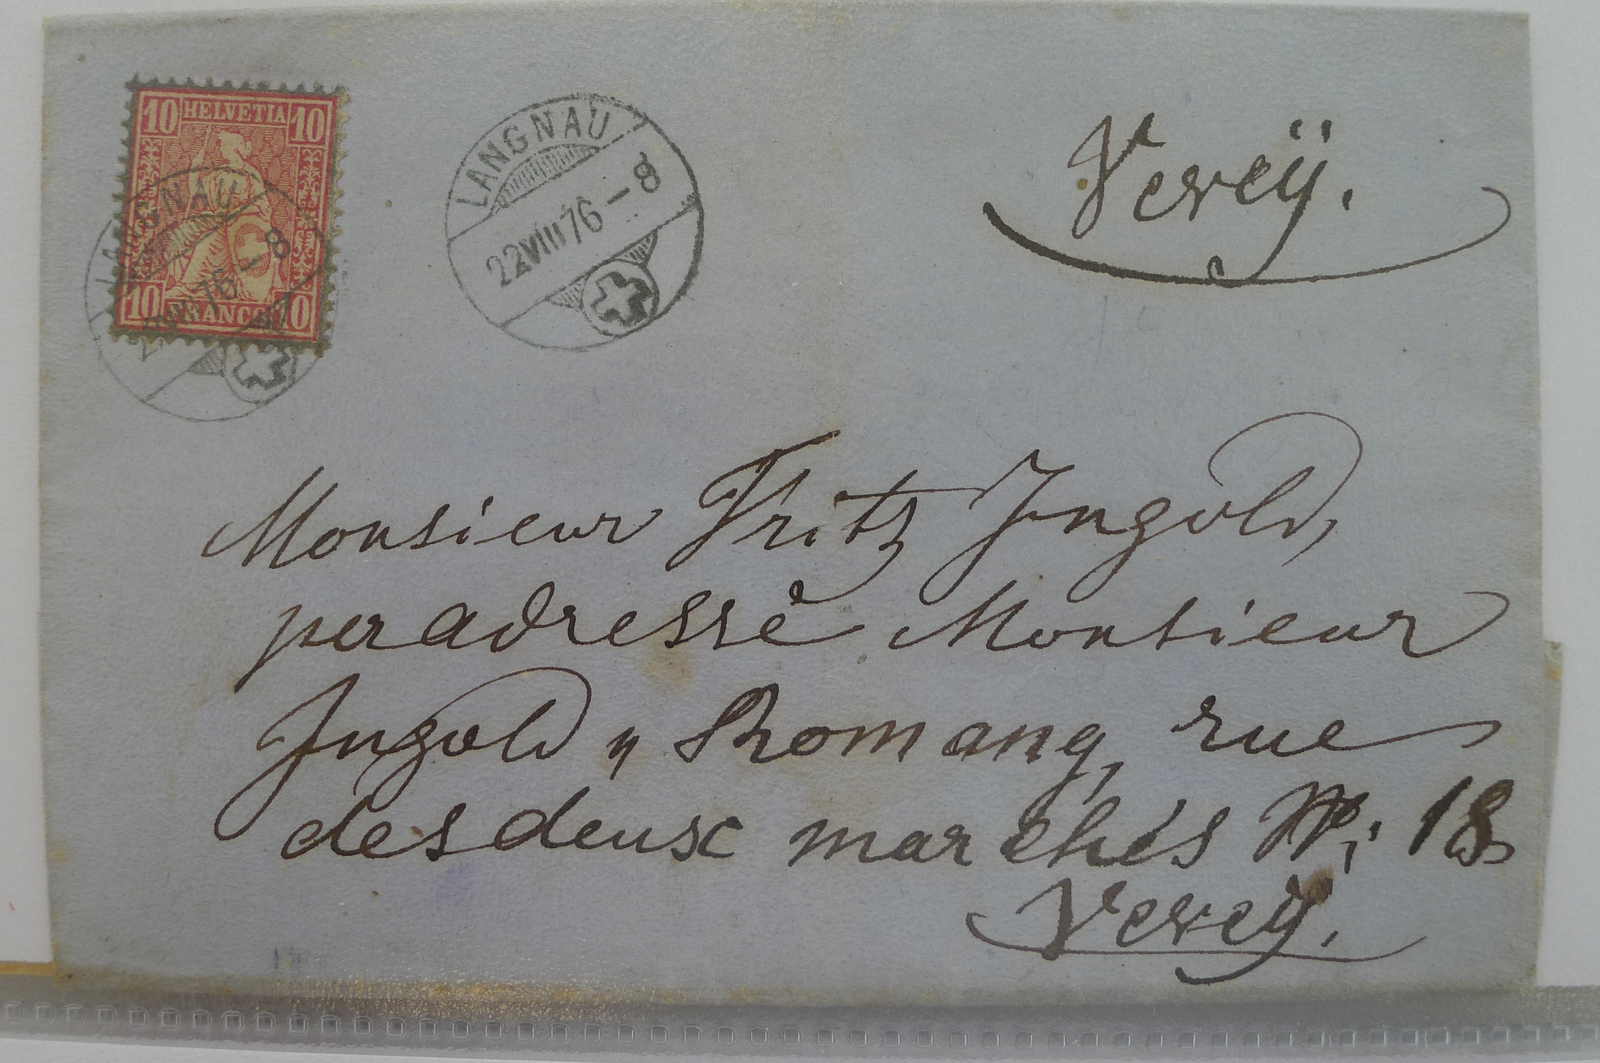 10 HELVETIA 10
10 FRANCO 10
LANGNAU
76-8
LANGNAU
22 VIII 76-8
Vevey.
Monsieur Fritz Ingold,
per adresse Monsieur
Ingold & Romang, rue
des deux marchés No. 18
Vevey.